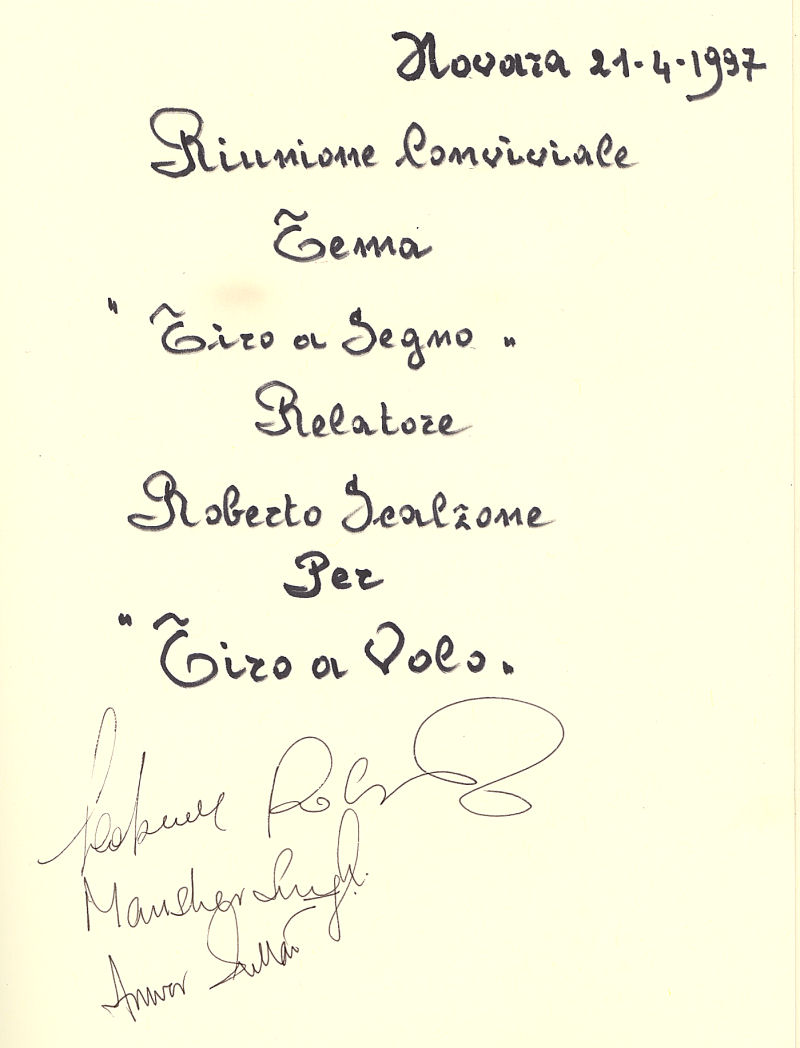 Novara 21-4-1997
Riunione Conviviale
Tema
" Tiro a Segno "
Relatore
Roberto Scalzone
Per
" Tiro a Volo "
Mansher Singh
Anwer Sultan